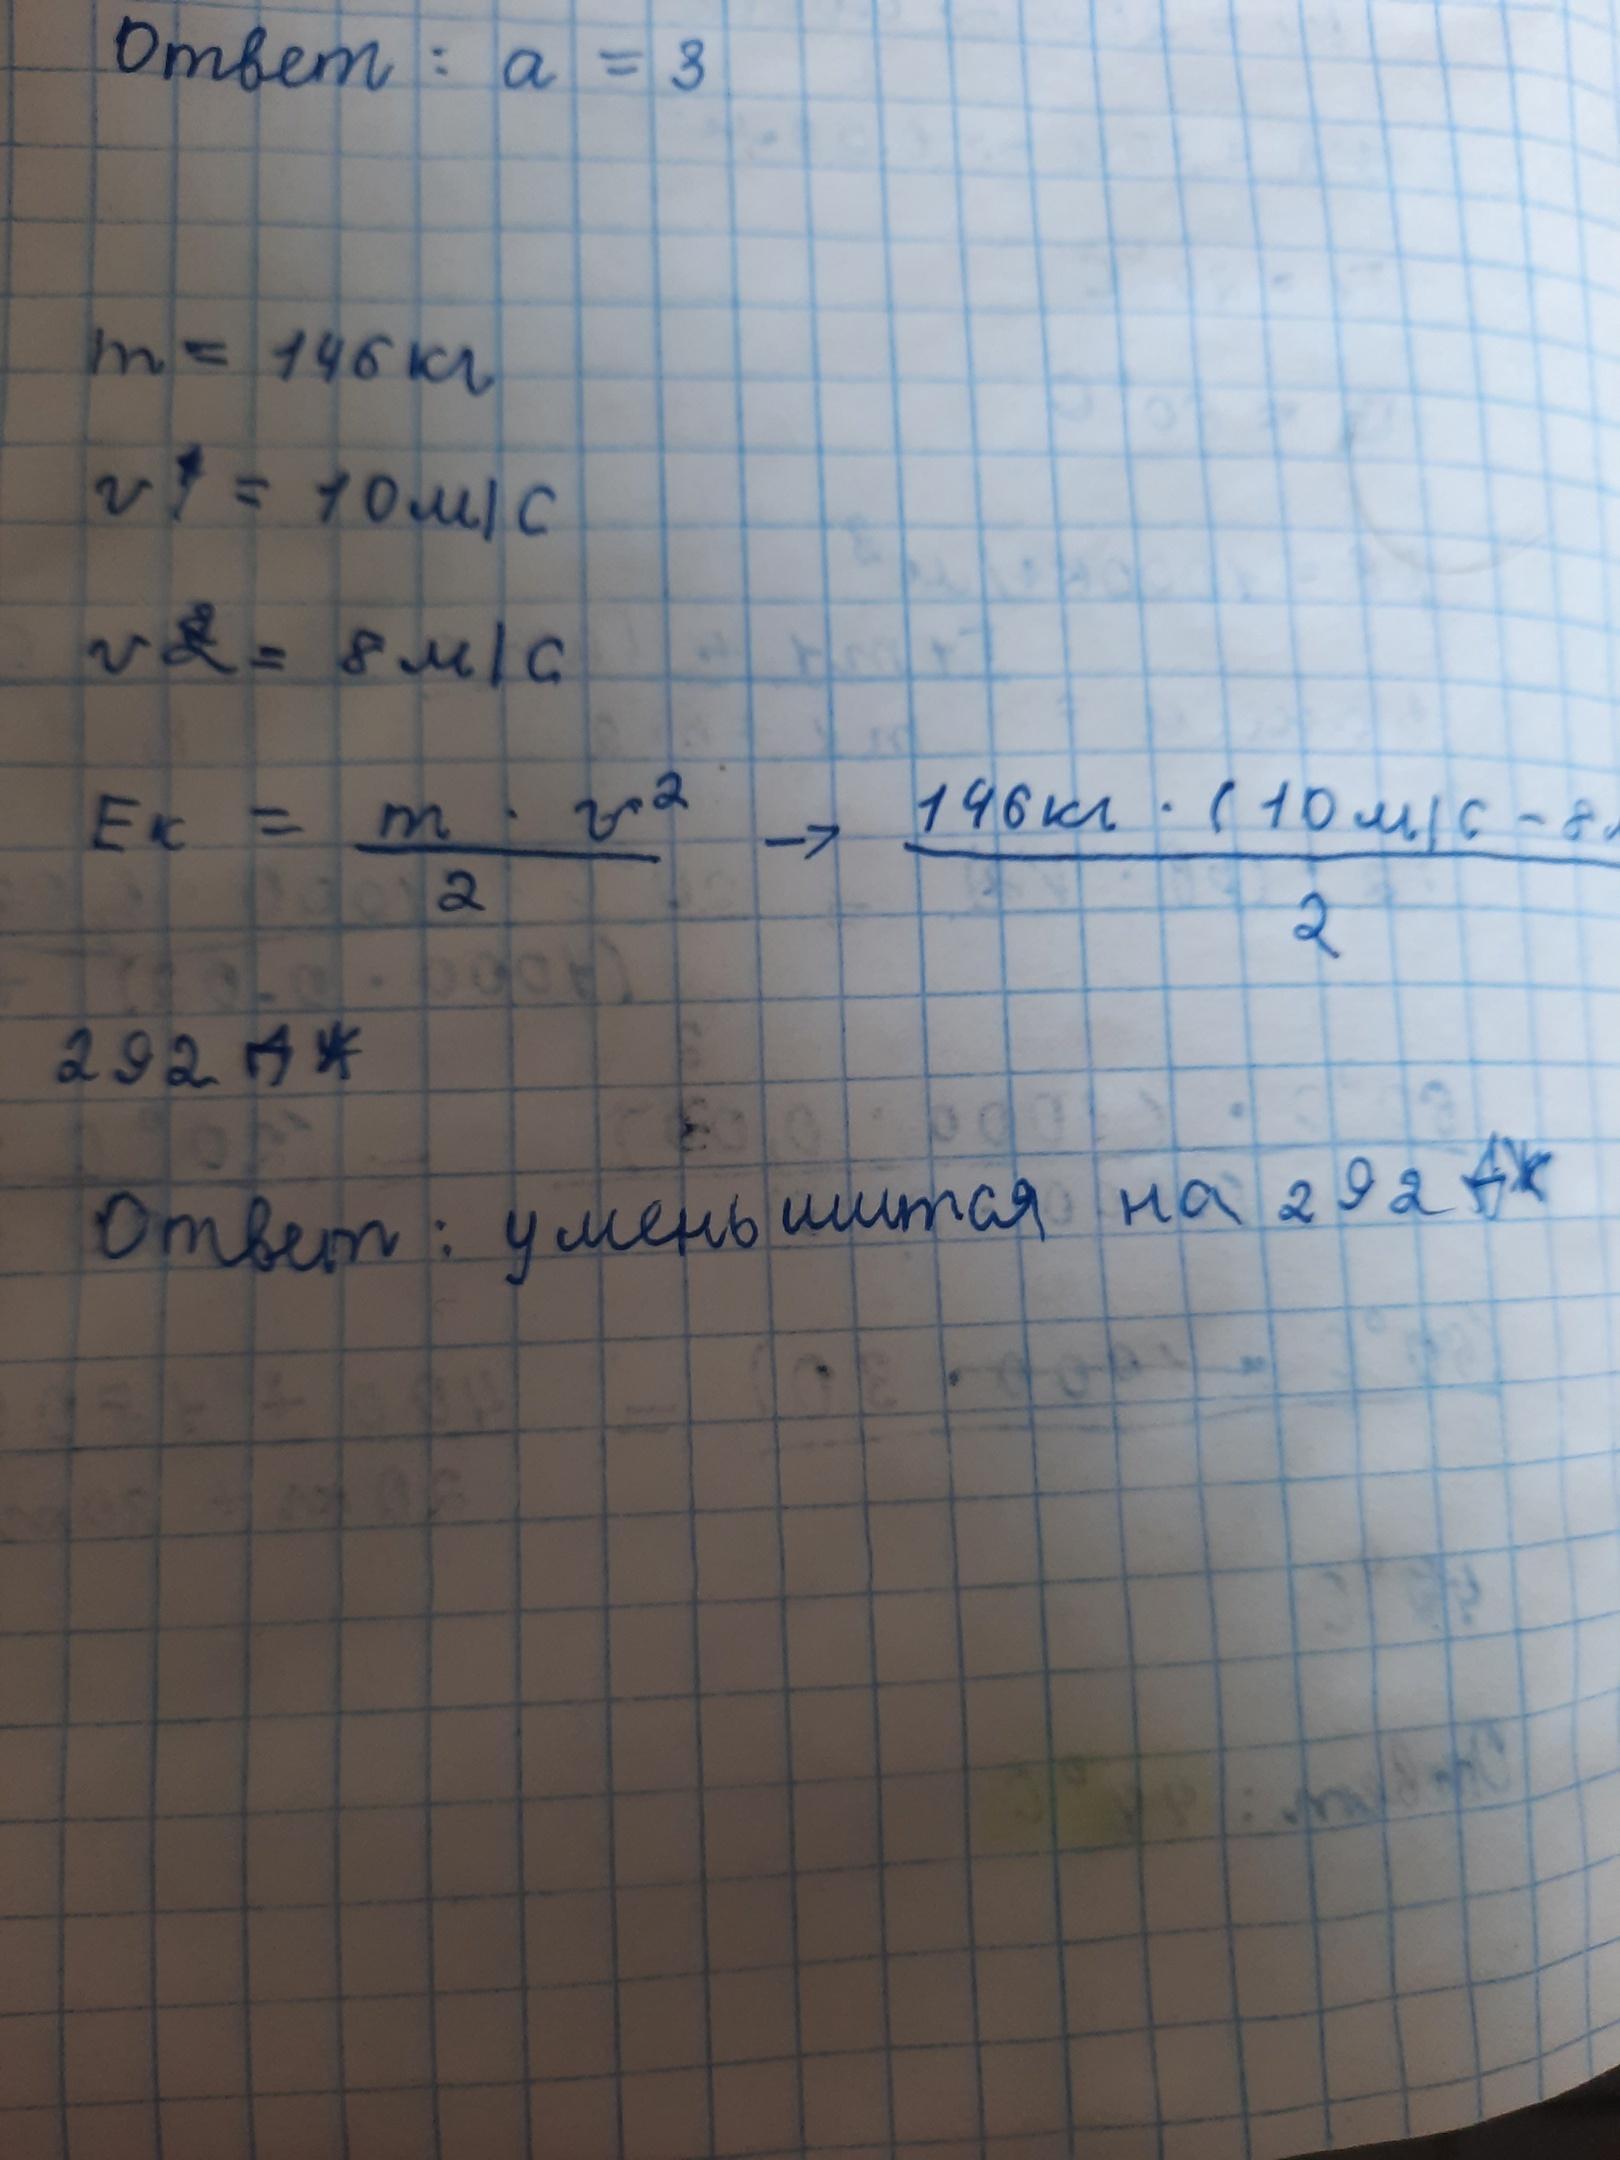 Ответ : a = 3
m = 146 кг
v1 = 10 м/с
v2 = 8 м/с
Eк = m · v² / 2 → 146 кг · (10 м/с - 8 / 2
292 Дж
Ответ : уменьшится на 292 Дж